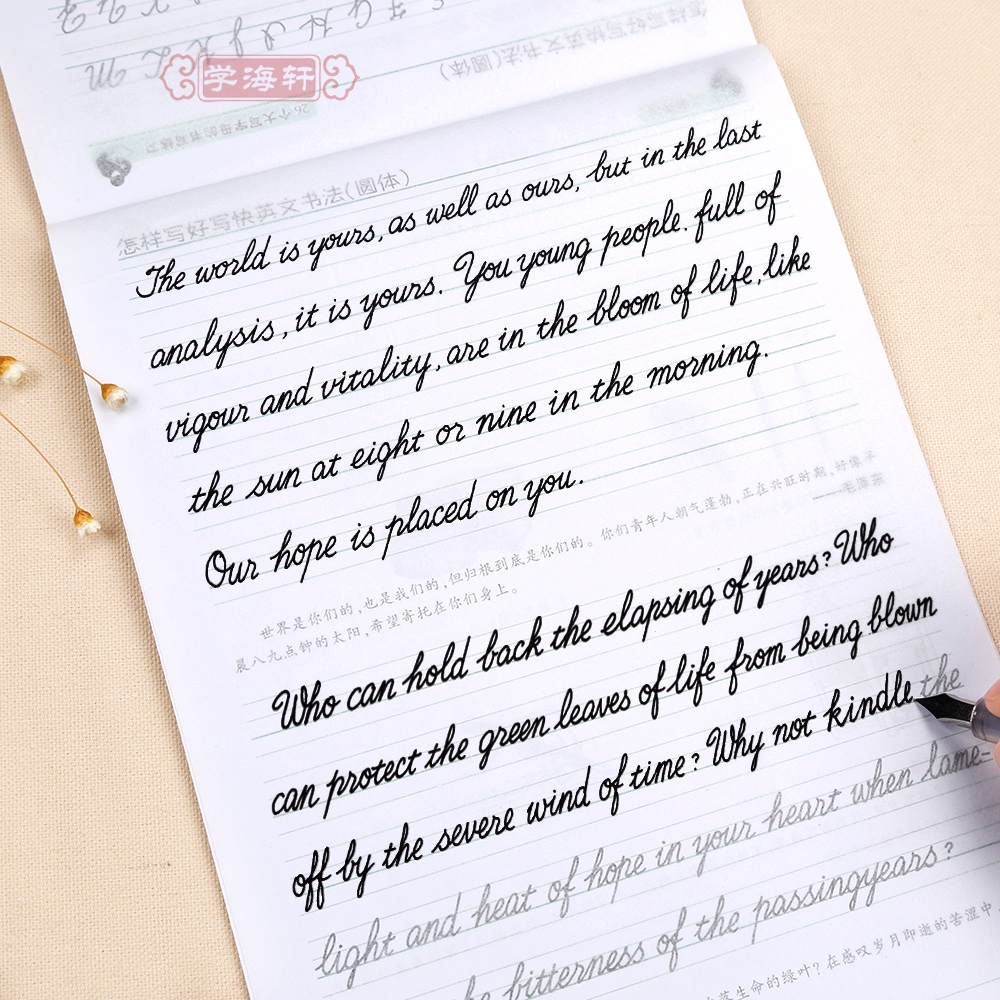 学海轩
怎样写好写快英文书法(圆体)
26个大写字母的书写练习
怎样写好写快英文书法(圆体)
The world is yours, as well as ours, but in the last
analysis, it is yours. You young people. full of
vigour and vitality, are in the bloom of life, like
the sun at eight or nine in the morning.
Our hope is placed on you.
世界是你们的,也是我们的,但归根到底是你们的。你们青年人朝气蓬勃,正在兴旺时期,好像早
晨八九点钟的太阳,希望寄托在你们身上。
——毛泽东
Who can hold back the elapsing of years? Who
can protect the green leaves of life from being blown
off by the severe wind of time? Why not kindle the
light and heat of hope in your heart when lame-
the bitterness of the passingyears?
落生命的绿叶?在感叹岁月即逝的苦涩中